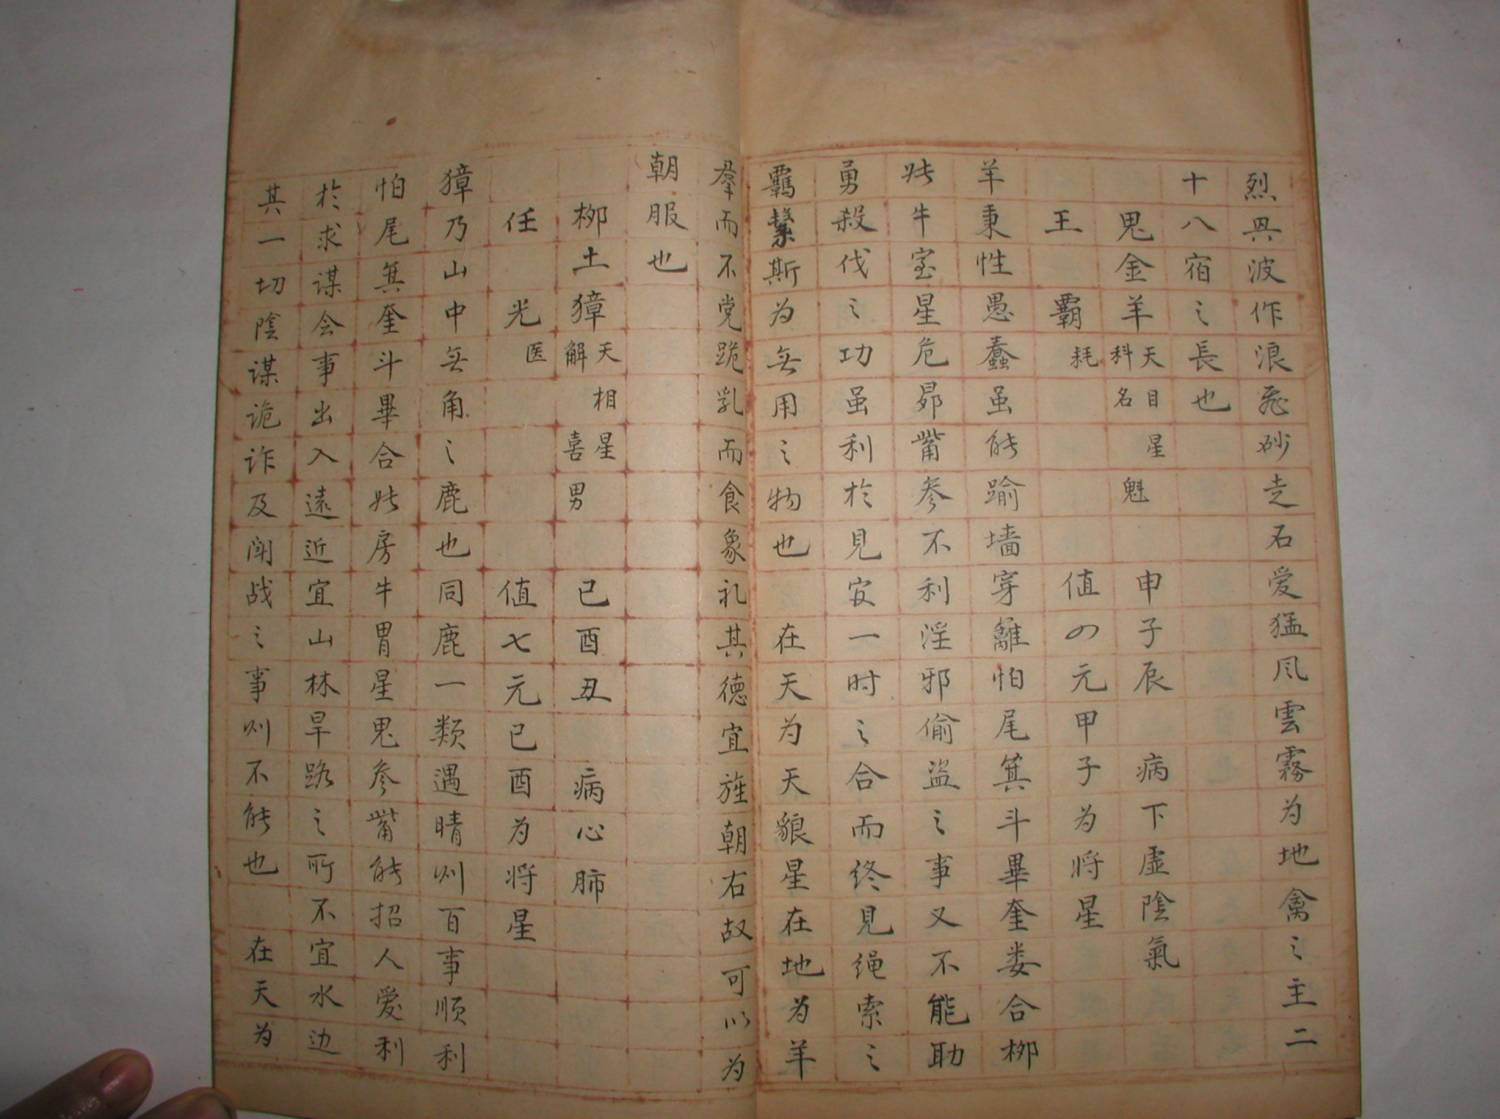 烈興波作浪飛砂走石爱猛风雲霧为地禽之主二
十八宿之長也
鬼金羊 天目星 科名魁 申子辰 病下虚陰氣
王 霸 耗 值四元甲子为将星
羊秉性愚蠢虽能踰墙穿籬怕尾箕斗畢奎娄合柳
牛室星危昴觜参不利淫邪偷盗之事又不能助
勇殺伐之功虽利於見安一时之合而终見绳索之
羁縶斯为无用之物也 在天为天狼星在地为羊
羣而不党跪乳而食象礼其德宜旌朝右故可以为
朝服也
柳土獐 天相星 解喜男 巳酉丑 病心肺
任 光 医 值七元巳酉为将星
獐乃山中无角之鹿也同鹿一類遇晴则百事顺利
怕尾箕奎斗畢合 房牛胃星鬼参觜能招人爱利
於求谋会事出入遠近宜山林旱路之所不宜水边
其一切陰谋诡诈及闻战之事则不能也 在天为